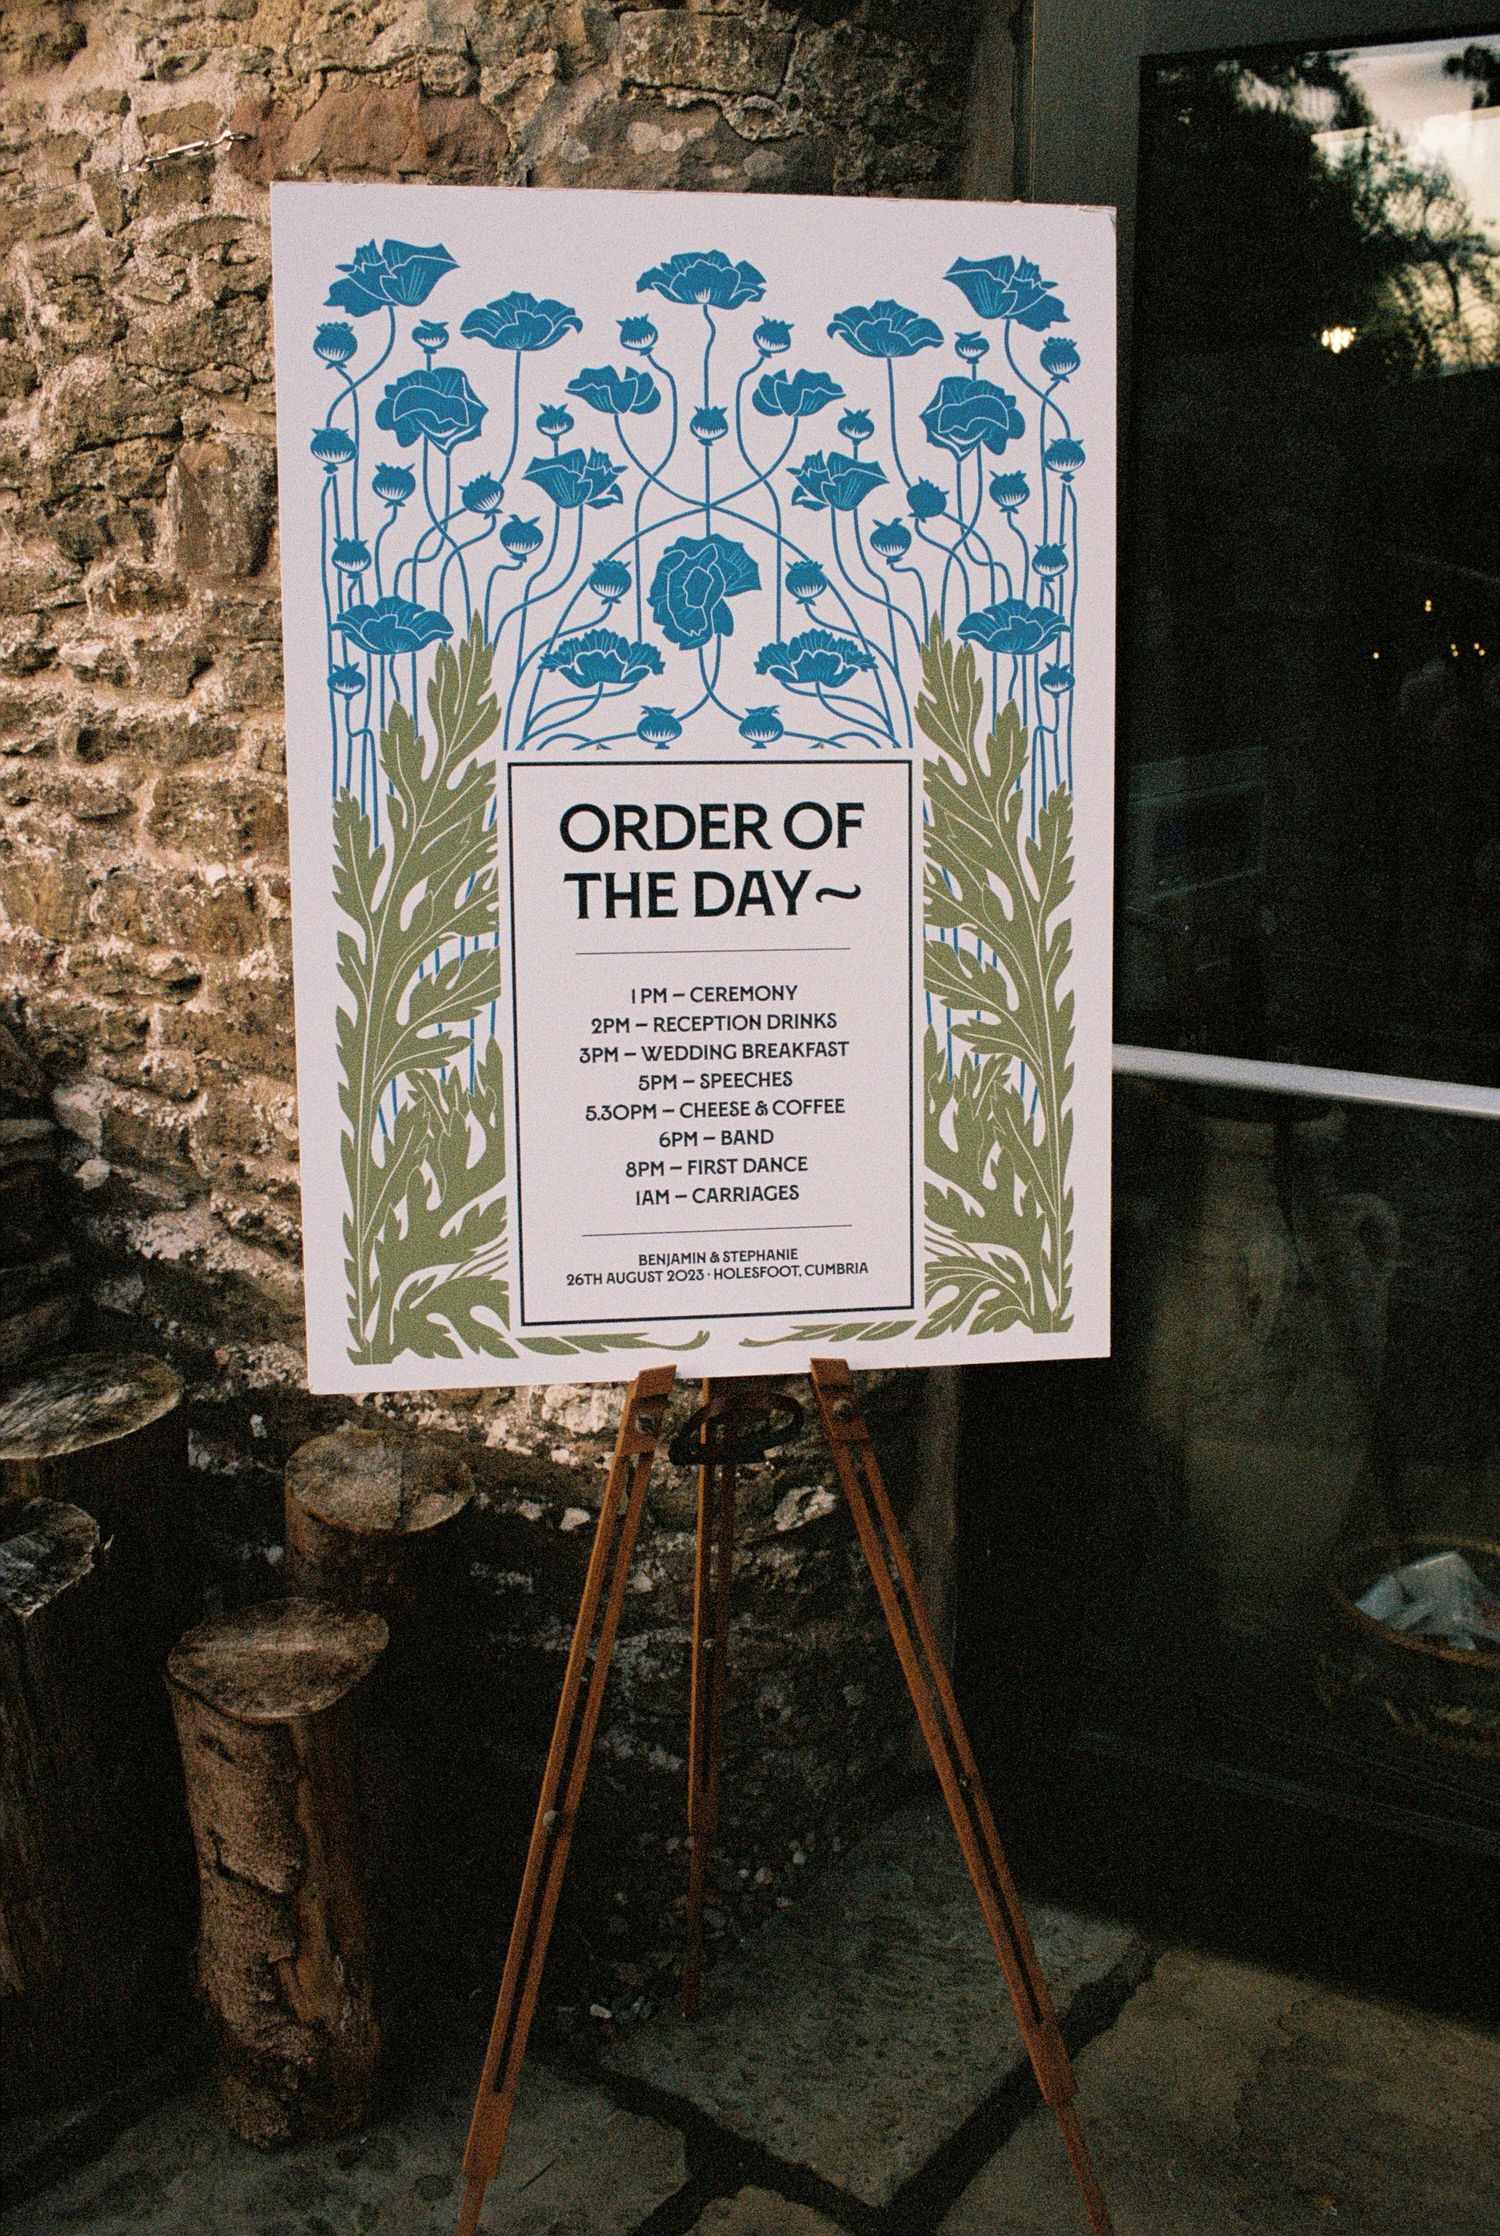 ORDER OF
THE DAY~
1PM – CEREMONY
2PM – RECEPTION DRINKS
3PM – WEDDING BREAKFAST
5PM – SPEECHES
5.30PM – CHEESE & COFFEE
6PM – BAND
8PM – FIRST DANCE
1AM – CARRIAGES
BENJAMIN & STEPHANIE
26TH AUGUST 2023 · HOLESFOOT, CUMBRIA